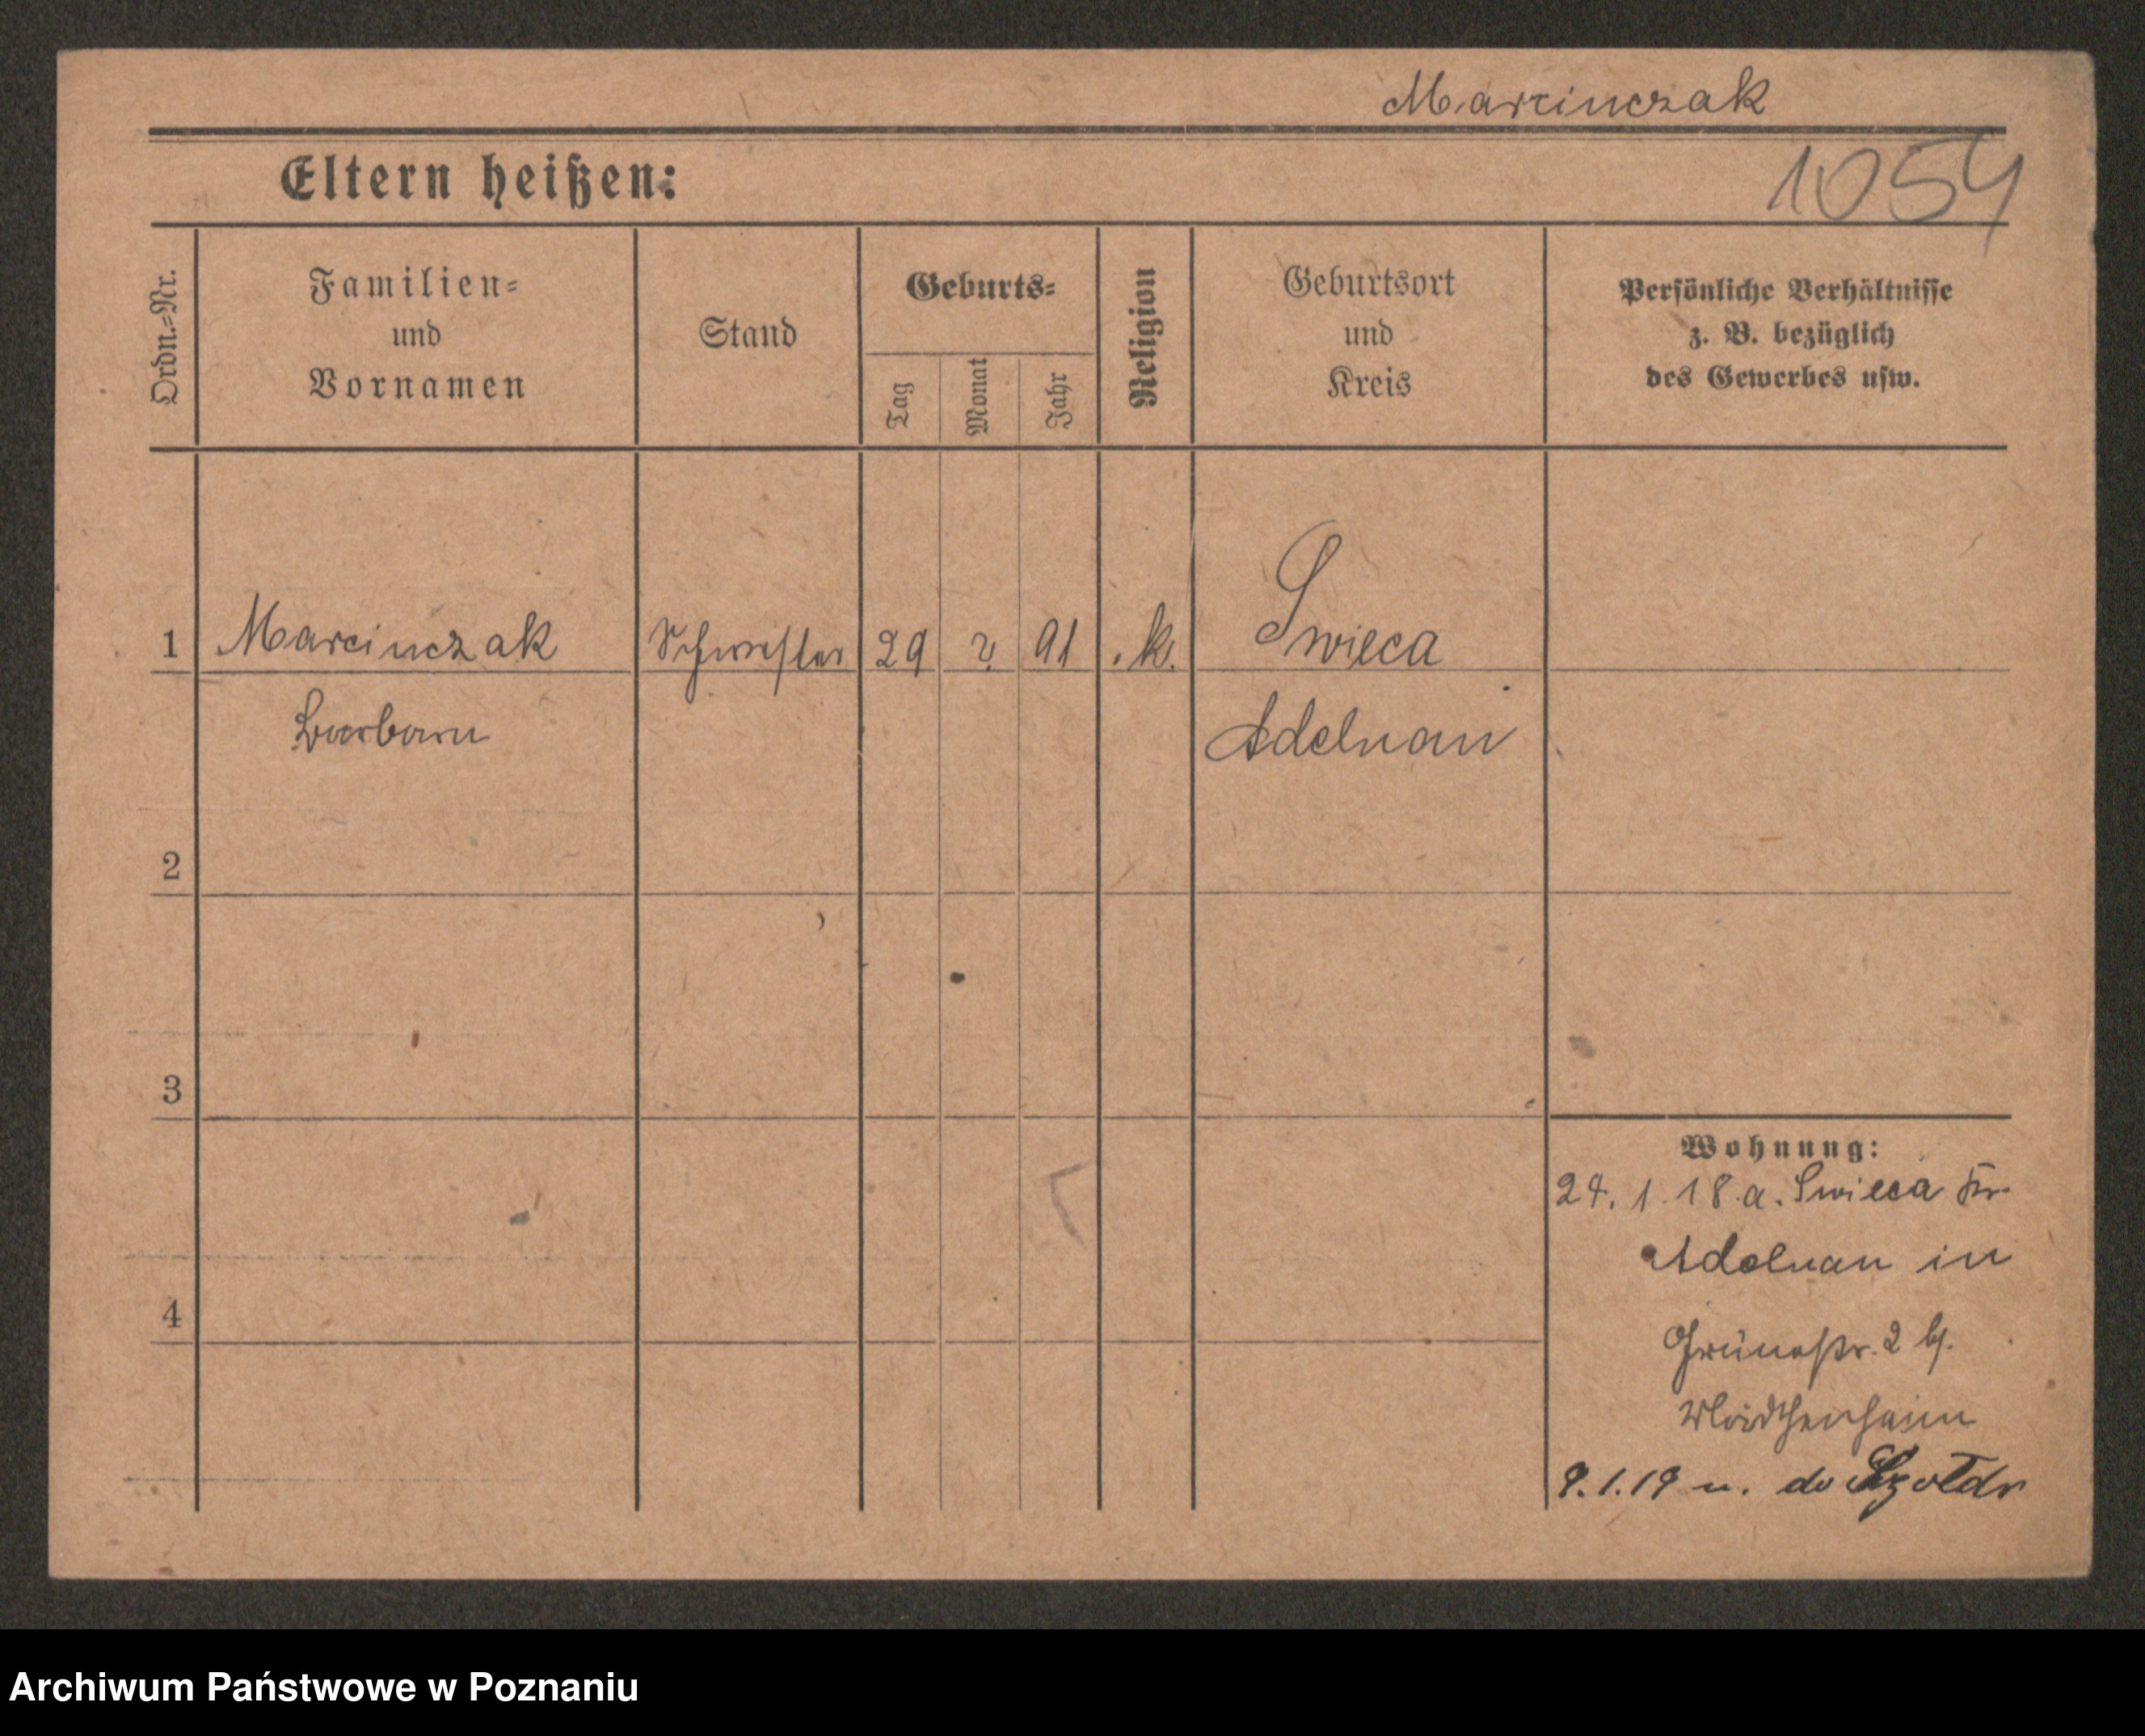 Marcinczak
Eltern heißen:
1054
Ordn.=Nr.
Familien=
und
Vornamen
Stand
Geburts=
Tag
Monat
Jahr
Religion
Geburtsort
und
Kreis
Persönliche Verhältnisse
z. B. bezüglich
des Gewerbes usw.
1 Marcinczak Schwester 29 91 k. Swieca
Barbara Adelnau
2
3
4
Wohnung:
24. 1. 18. a. Swieca Kr.
Adelnau in
Grünestr. 2 b.
Mädchenheim
9.1.19 u. do
Archiwum Państwowe w Poznaniu